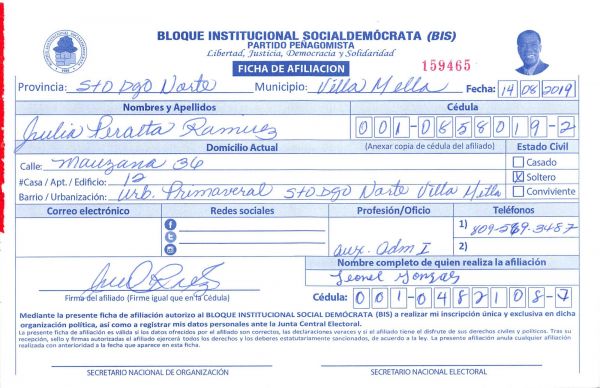 BLOQUE INSTITUCIONAL SOCIALDEMÓCRATA (BIS)
PARTIDO PEÑAGOMISTA
Libertad, Justicia, Democracia y Solidaridad
FICHA DE AFILIACION
159465
Provincia: Sto Dgo Norte Municipio: Villa Mella Fecha: 14 08 2019
Nombres y Apellidos Cédula
Julia Peralta Ramirez 001-0858019-2
Domicilio Actual (Anexar copia de cédula del afiliado) Estado Civil
Calle: Manzana 36 Casado
#Casa / Apt. / Edificio: 12 X Soltero
Barrio / Urbanización: Urb. Primaveral Sto Dgo Norte Villa Mella Conviviente
Correo electrónico Redes sociales Profesión/Oficio Teléfonos
1) 809-569-3487
aux. Adm I 2)
Nombre completo de quien realiza la afiliación
Leonel
Firma del afiliado (Firme igual que en la Cédula) Cédula: 001-0482108-7
Mediante la presente ficha de afiliación autorizo al BLOQUE INSTITUCIONAL SOCIAL DEMÓCRATA (BIS) a realizar mi inscripción única y exclusiva en dicha
organización política, así como a registrar mis datos personales ante la Junta Central Electoral.
La presente ficha de afiliación es válida si los datos ofrecidos por el afiliado son correctos, las declaraciones veraces y si el afiliado tiene el disfrute de sus derechos civiles y políticos. Tras su
recepción, sello y firmas autorizadas el afiliado ejercerá todos los derechos y los deberes estatutariamente sancionados, de acuerdo a la ley. La presente afiliación anula cualquier afiliación
realizada con anterioridad a la fecha que aparece en esta ficha.
SECRETARIO NACIONAL DE ORGANIZACIÓN SECRETARIO NACIONAL ELECTORAL